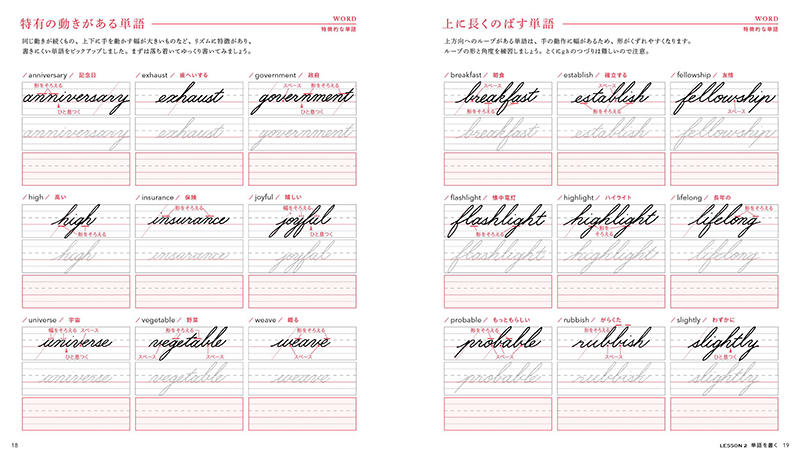 特有の動きがある単語
WORD
特徴的な単語
同じ動きが続くもの、上下に手を動かす幅が大きいものなど、リズムに特徴があり、
書きにくい単語をピックアップしました。まずは落ち着いてゆっくり書いてみましょう。
/ anniversary / 記念日
/ exhaust / 疲へいする
/ government / 政府
形をそろえる
スペース
形をそろえる
anniversary
exhaust
government
ひと息つく
ひと息つく
anniversary
exhaust
government
/ high / 高い
/ insurance / 保険
/ joyful / 嬉しい
形をそろえる
幅をそろえる
high
insurance
joyful
形をそろえる
ひと息つく
high
insurance
joyful
/ universe / 宇宙
/ vegetable / 野菜
/ weave / 織る
幅をそろえる
スペース
形をそろえる
形をそろえる
universe
vegetable
weave
ひと息つく
スペース
スペース
スペース
universe
vegetable
weave
18
上に長くのばす単語
WORD
特徴的な単語
上方向へのループがある単語は、手の動作に幅があるため、形がくずれやすくなります。
ループの形と角度を練習しましょう。とくにghのつづりは難しいので注意。
/ breakfast / 朝食
/ establish / 確立する
/ fellowship / 友情
スペース
スペース
breakfast
establish
fellowship
形をそろえる
形をそろえる
スペース
breakfast
establish
fellowship
/ flashlight / 懐中電灯
/ highlight / ハイライト
/ lifelong / 長年の
形をそろえる
flashlight
highlight
lifelong
形をそろえる
形を
そろえる
flashlight
highlight
lifelong
/ probable / もっともらしい
/ rubbish / がらくた
/ slightly / わずかに
形をそろえる
形をそろえる
probable
rubbish
slightly
スペース
ひと息つく
probable
rubbish
slightly
LESSON 2 単語を書く 19